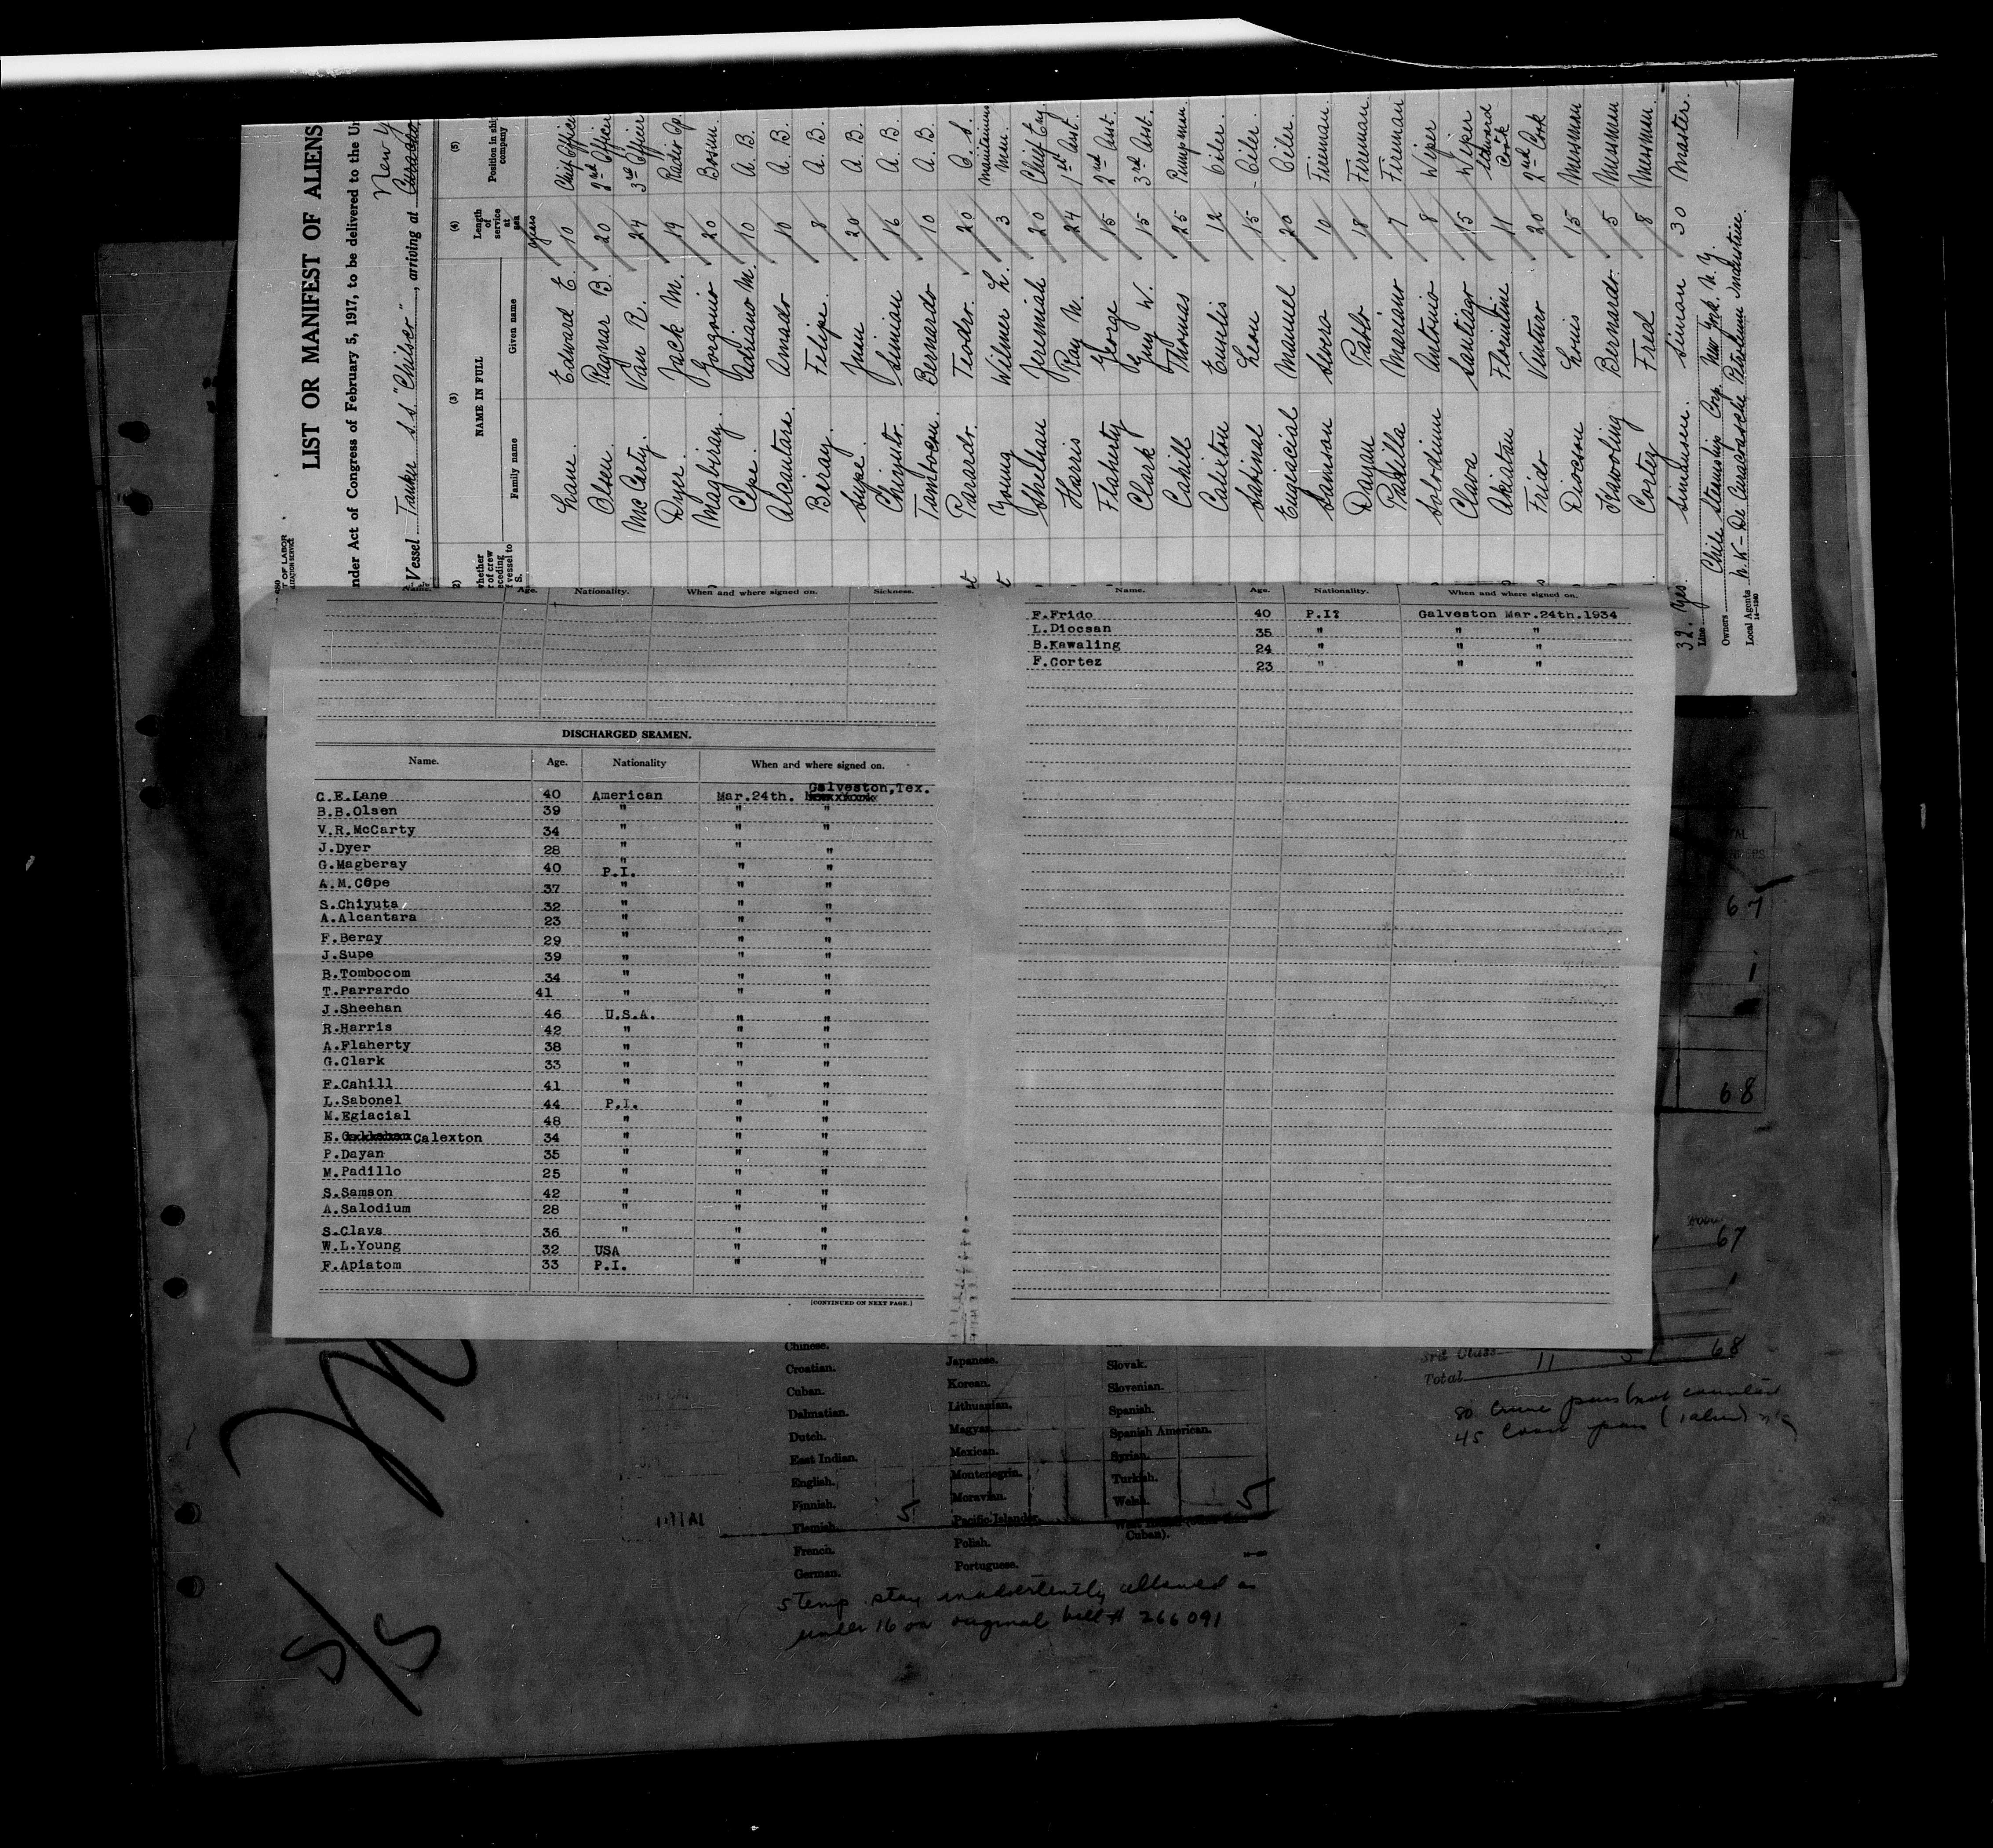 LIST OR MANIFEST OF ALIENS
nder Act of Congress of February 5, 1917, to be delivered to the Un
New Y
Vessel Tanker S.S. "Chilsco", arriving at
(3) (4) (5)
NAME IN FULL Length of service at sea Position in ship company
Family name Given name
years
Lane. Edward E. 10 Chief Officer
Olsen. Ragnar B. 20 2nd Officer
McCarty. Van R. 24 3rd Officer
Dyer. Jack M. 19 Radio Op.
Magbiray. Gorgonio 20 Bosun.
Cepe. Adriano M. 10 A. B.
Alcantara. Amado 10 A. B.
Beray. Felipe. 8 A. B.
Supe. Juan 20 A. B.
Chiyuto. Simion 16 A. B.
Tambocon. Bernardo 10 A. B.
Parardo. Teodro. 20 O. S.
Young Wilmer L. 3 Maintainance Man.
Sheehan Jeremiah 20 Chief Eng.
Harris Ray N. 24 1st Asst.
Flaherty George 15 2nd Asst.
Clark Guy W. 15 3rd Asst.
Cahill Thomas 25 Pumpman.
Calixton Eusilis 12 Oiler.
Sabinal Leon 15 Oiler.
Engiacial Manuel 20 Oiler.
Samson Severo 10 Fireman.
Dayan Pablo 18 Fireman.
Padilla Mariano 7 Fireman
Solodium Antonio 8 Wiper
Clava Santiago 15 Wiper
Akiatan Florintine 11 Steward Cook
Frido Venturo 20 2nd Cook
Diocson Louis 15 Messman
Kawoling Bernardo. 5 Messman
Cortez Fred 8 Messman.
32. Yes. Simonsen. Simon 30 Master.
Line
Owners Chile Steamship Corp. New York. N. Y.
Local Agents
Name. Age. Nationality. When and where signed on. Sickness.
DISCHARGED SEAMEN.
Name. Age. Nationality When and where signed on.
C.E.Lane 40 American Mar.24th. Galveston,Tex.
B.B.Olsen 39 " " "
V.R.McCarty 34 " " "
J.Dyer 28 " " "
G.Magberay 40 P.I. " "
A.M.Cepe 37 " " "
S.Chiyuta 32 " " "
A.Alcantara 23 " " "
F.Beray 29 " " "
J.Supe 39 " " "
B.Tombocom 34 " " "
T.Parrardo 41 " " "
J.Sheehan 46 U.S.A. " "
R.Harris 42 " " "
A.Flaherty 38 " " "
G.Clark 33 " " "
F.Cahill 41 " " "
L.Sabonel 44 P.I. " "
M.Egiacial 48 " " "
E. Calexton 34 " " "
P.Dayan 35 " " "
M.Padillo 25 " " "
S.Samson 42 " " "
A.Salodium 28 " " "
S.Clava 36 " " "
W.L.Young 32 USA " "
F.Apiatom 33 P.I. " "
[CONTINUED ON NEXT PAGE.]
Name. Age. Nationality. When and where signed on.
F.Frido 40 P.I? Galveston Mar.24th.1934
L.Diocsan 35 " " "
B.Kawaling 24 " " "
F.Cortez 23 " " "
67
1
68
67
1
3rd Class 11 68
Total
Chinese.
Croatian. Japanese. Slovak.
Cuban. Korean. Slovenian.
Dalmatian. Lithuanian. Spanish.
Dutch. Magyar. Spanish American.
East Indian. Mexican. Syrian.
English. Montenegrin. Turkish.
Finnish. 5 Moravian. Welsh. 5
Flemish. Pacific Islander.
French. Polish. Cuban).
German. Portuguese.
5 temp. stay inadvertently allowed as
under 16 on original bill # 266091
S/S